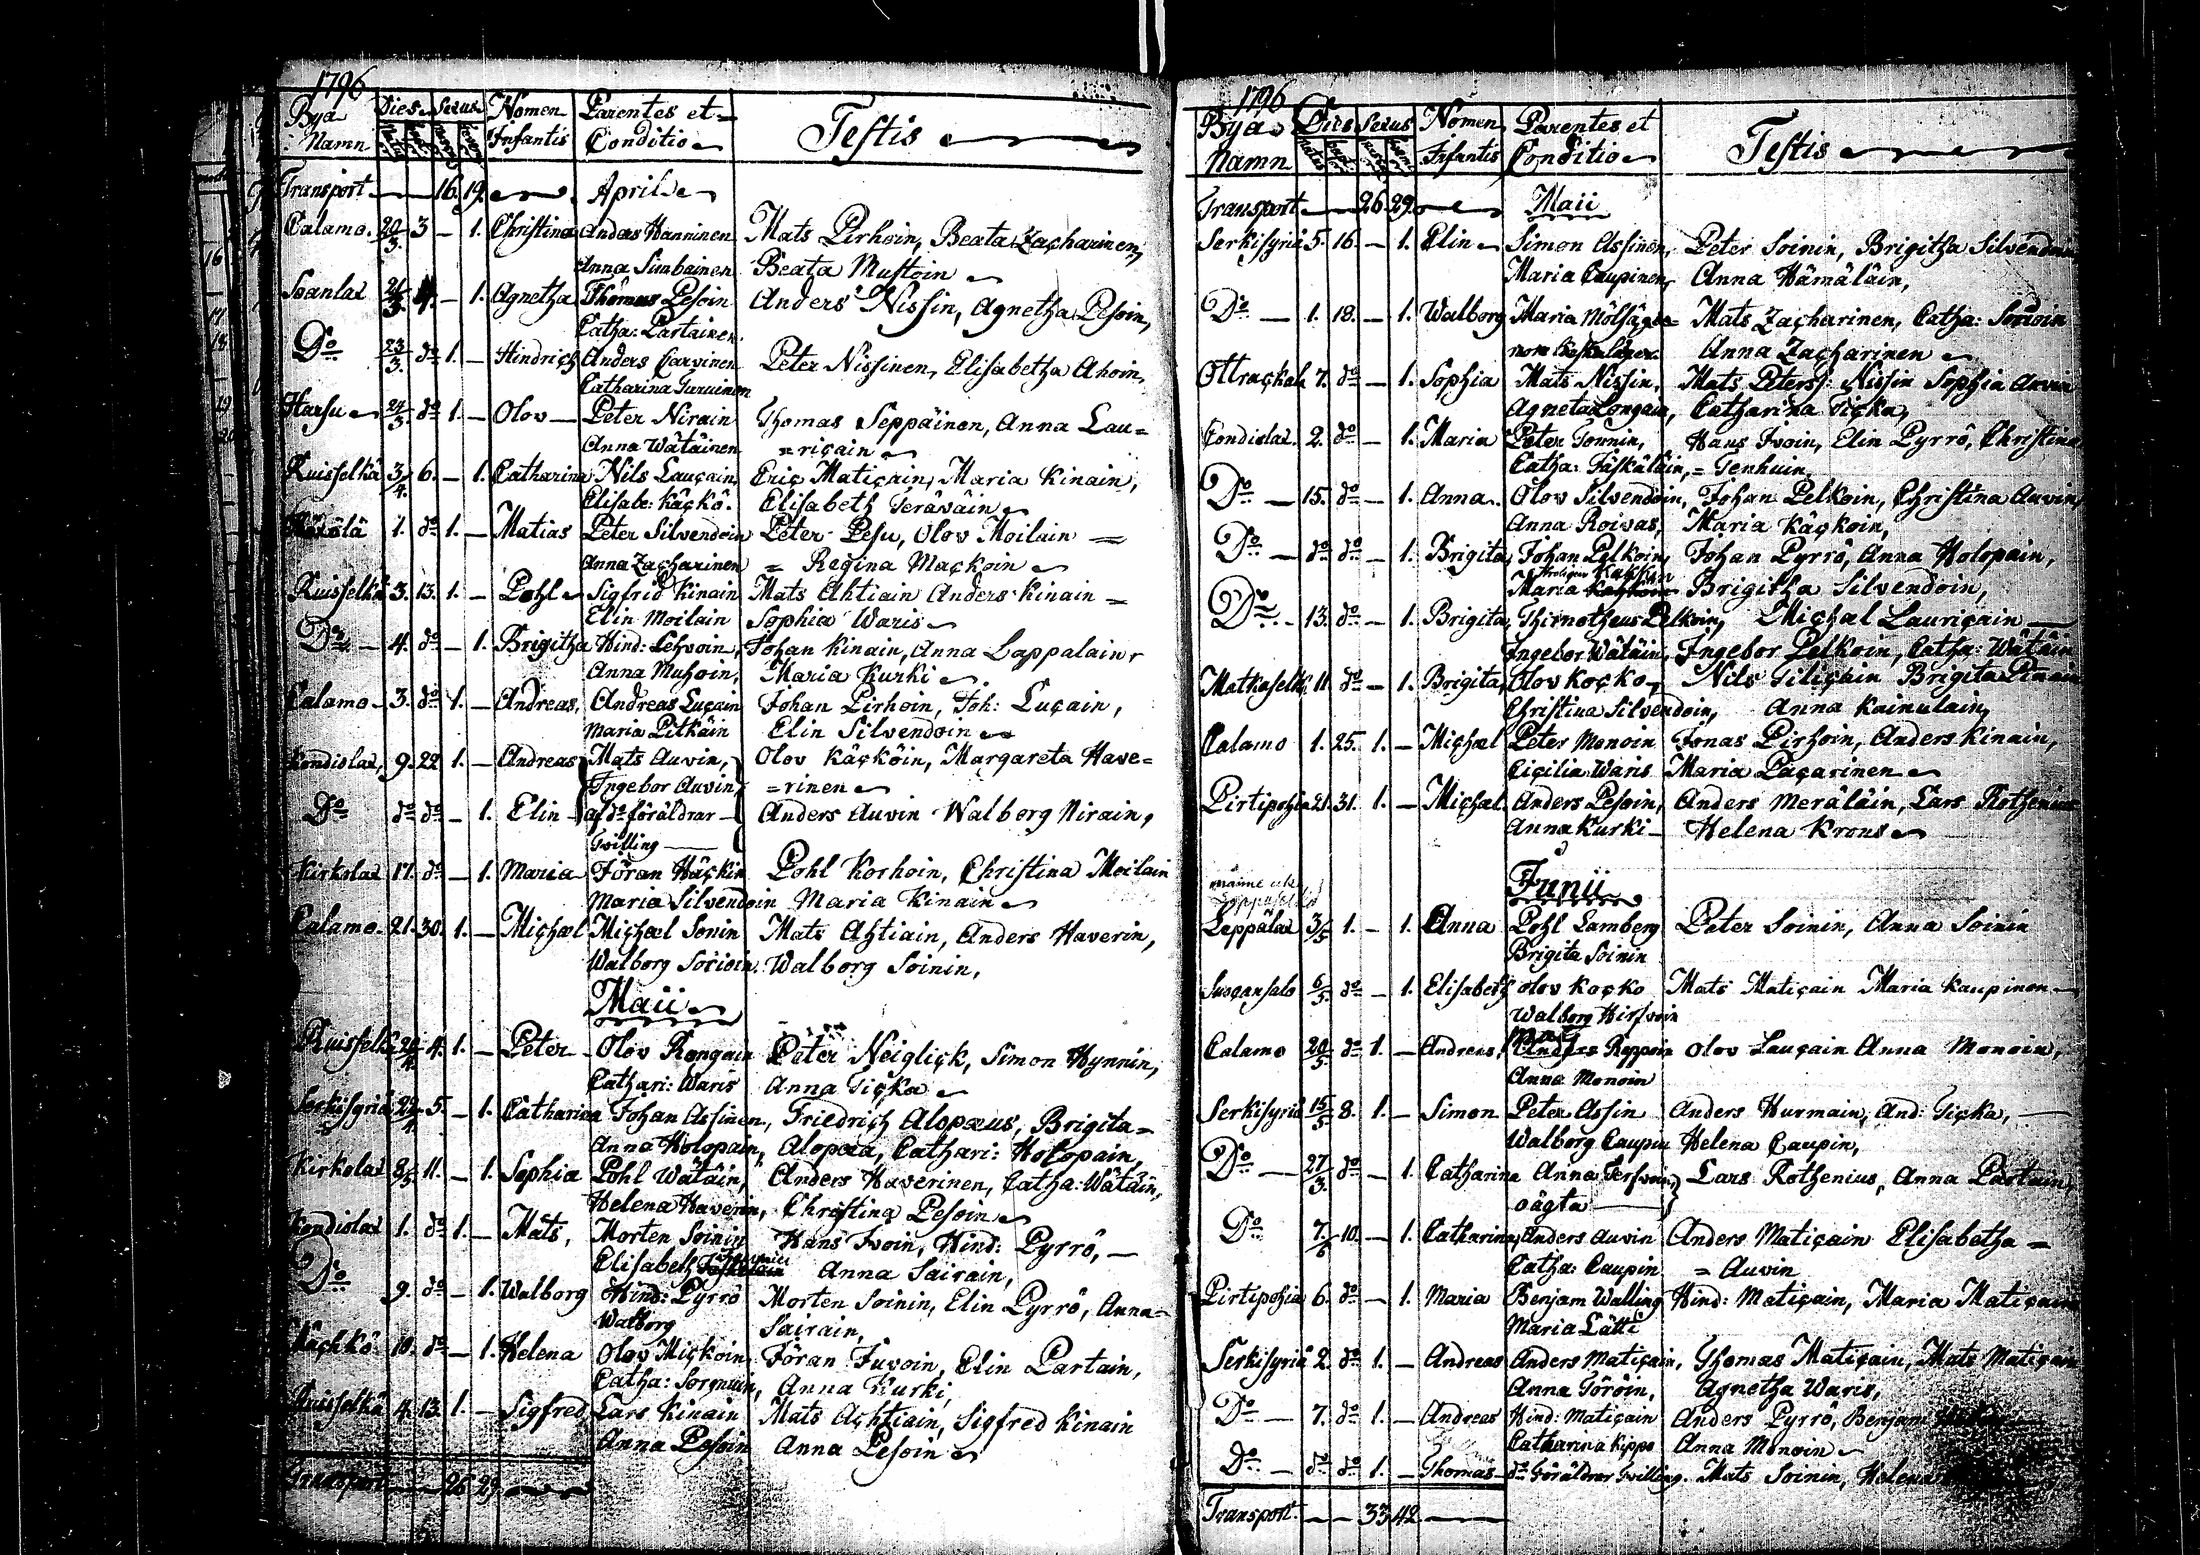 1796
Bya Namn Dies Sexus Nomen Infantis Parentes et Conditio Testis
Transport 16. 19. Aprile
Calamo. 20/3. 3 — 1. Christina Anders Hanninen Mats Pirhoin, Beata Zacharinen,
Anna Simbainen Beata Mustoin
Soanlax 21/3. — 1. Agnetha Thomas Pesoin Anders Nissin, Agnetha Pesoin,
Catha: Partainen
Do 23/3. do 1. — Hindrich Anders Carvinen Peter Nissinen, Elisabetha Ahoin,
Catharina Turuinen
Harsu 24/3. do 1. — Olov Peter Nirain Thomas Seppäinen, Anna Lau=
Anna Wätäinen =ricain
Ruisselkä 3/4. 6. — 1. Catharina Nils Laucain, Eric Maticain, Maria Kinain,
Elisabe: Käckö. Elisabeth Teräväin
1. do 1. — Matias Peter Silvendoin Peter Pesu, Olov Moilain =
Anna Zacharinen = Regina Mackoin
Ruisselkä 3. 13. 1. — Pohl Sigfrid Kinain Mats Ahtiain Anders Kinain =
Elin Moilain Sophia Waris
Do — 4. do — 1. Brigitha Hind: Lehvoin, Johan Kinain, Anna Lappalain
Anna Muhoin, Maria Kurki
Calamo 3. do 1. — Andreas, Andreas Lucain Johan Pirhoin, Joh: Lucain,
Maria Pitkäin Elin Silvendoin
Kondiolax, 9. 22 1. — Andreas Mats Auvin, Olov Käcköin, Margareta Have=
Ingebor Auvin =rinen
Do do do — 1. Elin af do föräldrar Anders Auvin Walborg Nirain,
Twilling
Kirkolax 17. do — 1. Maria Jöran Häckin Pohl Korhoin, Christina Moilain
Maria Silvendoin Maria Kinain
Calamo 21. 30. 1. — Michael Michael Sonin Mats Ahtiain, Anders Haverin,
Walborg Walborg Soinin,
Maii
Ruisselkä 4. 1. — Peter Olov Rongain Peter Neiglick, Simon Hynnin,
Cathari: Waris Anna Ticka
Serkisyriä 5. — 1. Catharina Johan Assinen, Friedrich Alopæus, Brigita=
Anna Holopain, Alopæa, Cathari: Holopain,
Kirkolax 11. — 1. Sophia Pohl Wätäin, Anders Haverinen, Catha: Wätäin,
Helena Haverin, Christina Pesoin
Kondiolax 1. do 1. — Mats, Morten Soinin Hans Ivoin, Hind: Pyrrö, —
Elisabeth Anna Sairain,
Do 9. do — 1. Walborg Hind: Pyrrö Morten Soinin, Elin Pyrrö, Anna=
Walborg Sairain,
10. do — 1. Helena Olov Mickoin Jöran Juvoin, Elin Partain,
Catha: Anna Kurki,
Ruisselkä 4. 13. 1. — Sigfred Lars Kinain Mats Achtiain, Sigfred Kinain
Anna Pesoin Anna Pesoin
Transport 26 29
1796
Bya Namn Dies Sexus Nomen Infantis Parentes et Conditio Testis
Transport 26. 29. Maii
Serkisyriä 5. 16. — 1. Elin Simon Assinen, Peter Soinin, Brigitha Silvendoin
Maria Caupinen, Anna Hämäläin,
Do — 1. 18. — 1. Walborg Maria Mats Zacharinen, Catha:
Anna Zacharinen
Ottrackala 7. do — 1. Sophia Mats Nissin, Mats Peterss: Nissin Sophia Auvin
Agneta Longain, Catharina Ticka,
Condiolax. 2. do — 1. Maria Peter Tonnin, Hans Ivoin, Elin Pyrrö, Christina
Catha: Jäskäläin, = Tenhuin
Do — 15. do — 1. Anna. Olov Silvendoin, Johan Pelkoin, Christina Auvin,
Anna Roivas, Maria Käckoin,
Do — do do — 1. Brigita, Johan Pelkoin, Johan Pyrrö, Anna Holopain,
Maria Brigitha Silvendoin,
Do — 13. do — 1. Brigita, Thimotheus Pelkoin, Michael Lauricain
Ingebor Wätäin, Ingebor Pelkoin, Catha: Wätäin
Matkaselkä 11. do — 1. Brigita, Olov Kocko Nils Tilicain Brigita
Christina Silvendoin, Anna Kainulain,
Calamo 1. 25. 1. — Michael Peter Monoin Jonas Pirhoin, Anders Kinain,
Cicilia Waris Maria Pacarinen
Pirtipohia 21. 31. 1. — Michael. Anders Pesoin, Anders Meräläin, Lars Rothenius
Anna Kurki Helena Krons
Junii
Leppälax 3/5 1. — 1. Anna Pohl Lamberg Peter Soinin, Anna Soinin
Brigita Soinin
Suocansalo 6/5 do — 1. Elisabeth Olov Kocko Mats Maticain Maria Kaupinen
Walborg Hirfvoin
Calamo 20/5 do 1. — Andreas, Reppoin Olov Laucain Anna Monoin,
Anna Monoin
Serkisyriä 15/5 8. 1. — Simon Peter Assin Anders Hurmain, And: Ticka, —
Walborg Caupin Helena Caupin,
Do — 27/3. do — 1. Catharina Anna Lars Rothenius, Anna Partain,
oägta
Do 7/6 10. — 1. Catharina, Anders Auvin Anders Maticain Elisabetha =
Catha: Caupin = Auvin
Pirtipohia 6. do — 1. Maria Benjam Walling Hind: Maticain, Maria Maticain
Maria Lätti
Serkisyriä 2. do 1. — Andreas Anders Maticain, Thomas Maticain, Mats Maticain
Anna Töröin, Agnetha Waris,
Do — 7. do 1. — Andreas Hind: Maticain Anders Pyrrö, Benjam
Catharina Kippo Anna Monoin
Do — do do 1. — Thomas do Föräldrar twilling. Mats Soinin, Helena
Transport. — — 33 42